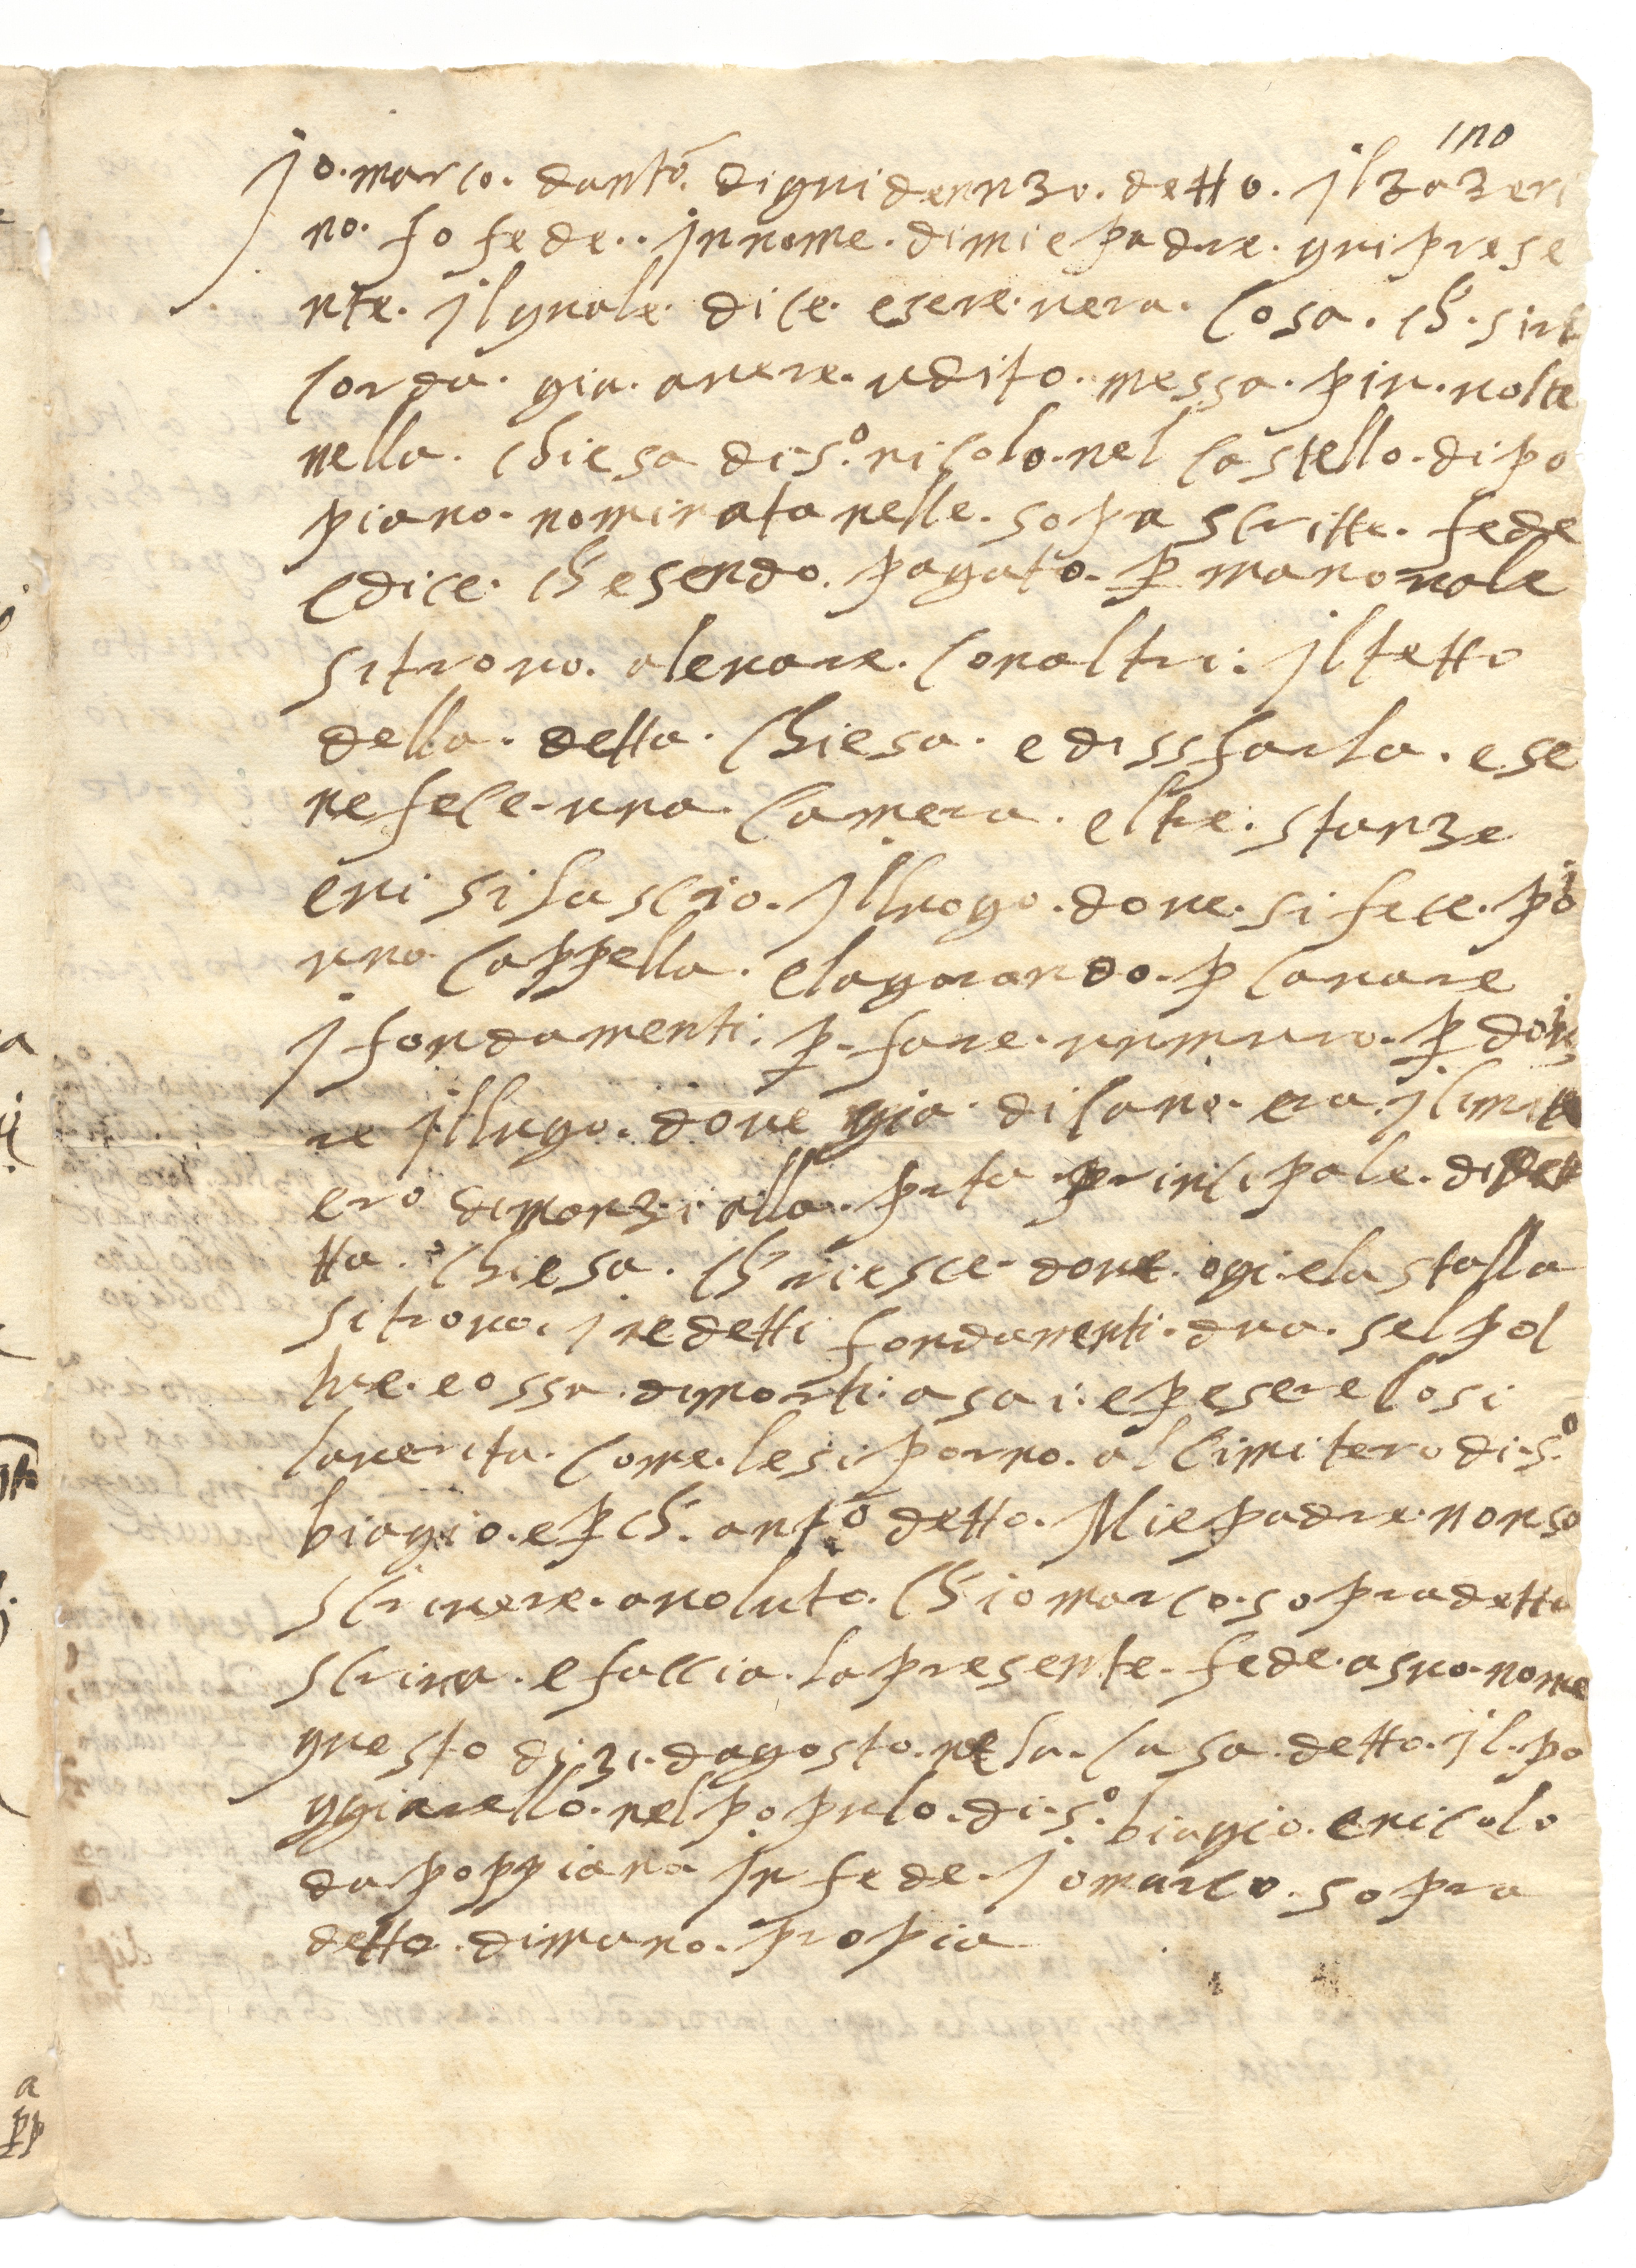 jo. marco. dantō. di guidennzo. detto. jl zazeri
no. fo fede.. jnnome. di mie padre. qui prese
nte. jl quale. dice. esere. vera. cosa. ch̄. si ri
corda. gia. avere. udito. messa. piu. volte
nella. chiesa di s.o nicolo. nel castello. di po
piano. nominata nelle. sopra scritte. fede
e dice. ch̄ esendo. pagato. p̱ manovale
si trovo. a levare. con altri. jl tetto
della. detta. chiesa. e dissfarla. e se
ne fece. una. camera. e ltre. stanze
e vi si lascio. jlluogo. dove. si fece. poi
una. cappella. e lagorando. p̱ cavare
j fondamenti. p̱. fare. un muro. p̱
re jllugo. dove gia. di cano. era. jl
ero dinanzi alla. prta principale. di
tta. chiesa. ch̄ riesce. dove. ogi. e la stalla
si trovo. j ne detti fondamenti. dua. selpol
ture. e ossa. di morti. asai. e p̱ esere cosi
la verita. come. le si porno. al cimitero di s.o
biagio. e p̱ ch̄. antō detto. Mie padre. non sa
scrivere. a voluto. ch̄ io marco. sopradetto
scriva. e faccia. la presente. fede. a suo. nome
questo di 31. dagosto. nela. casa. detto. jl. po
ggiarello. nel popvlo. di. s.o biagio. e nicolo
da poppiano jn fede. jo marco. sopra
detto. di mano. propia